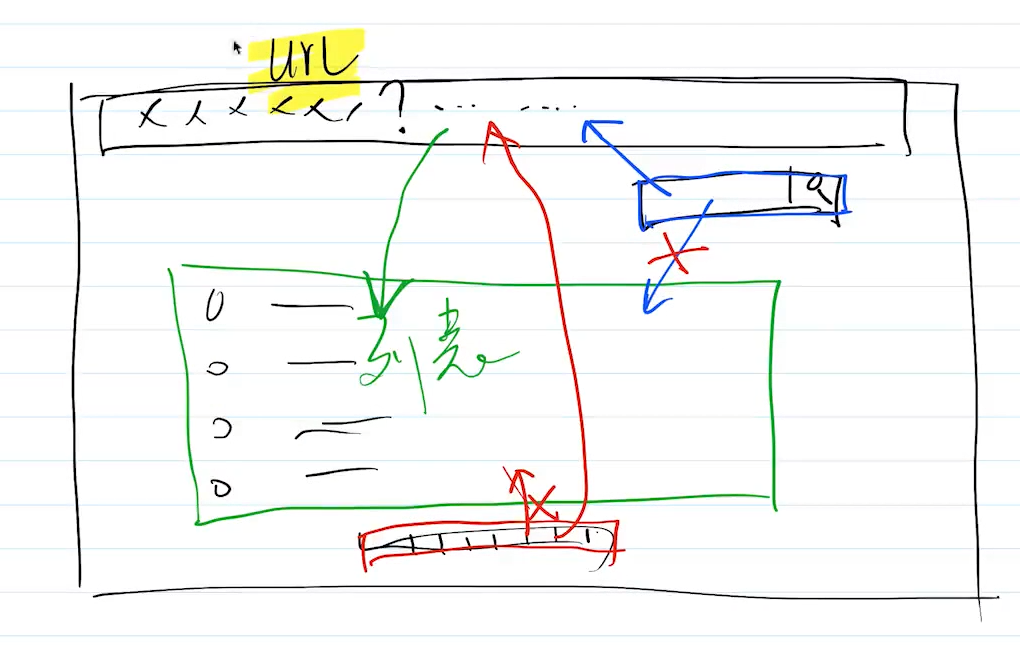 url
xxxxxx? ... ....
列表